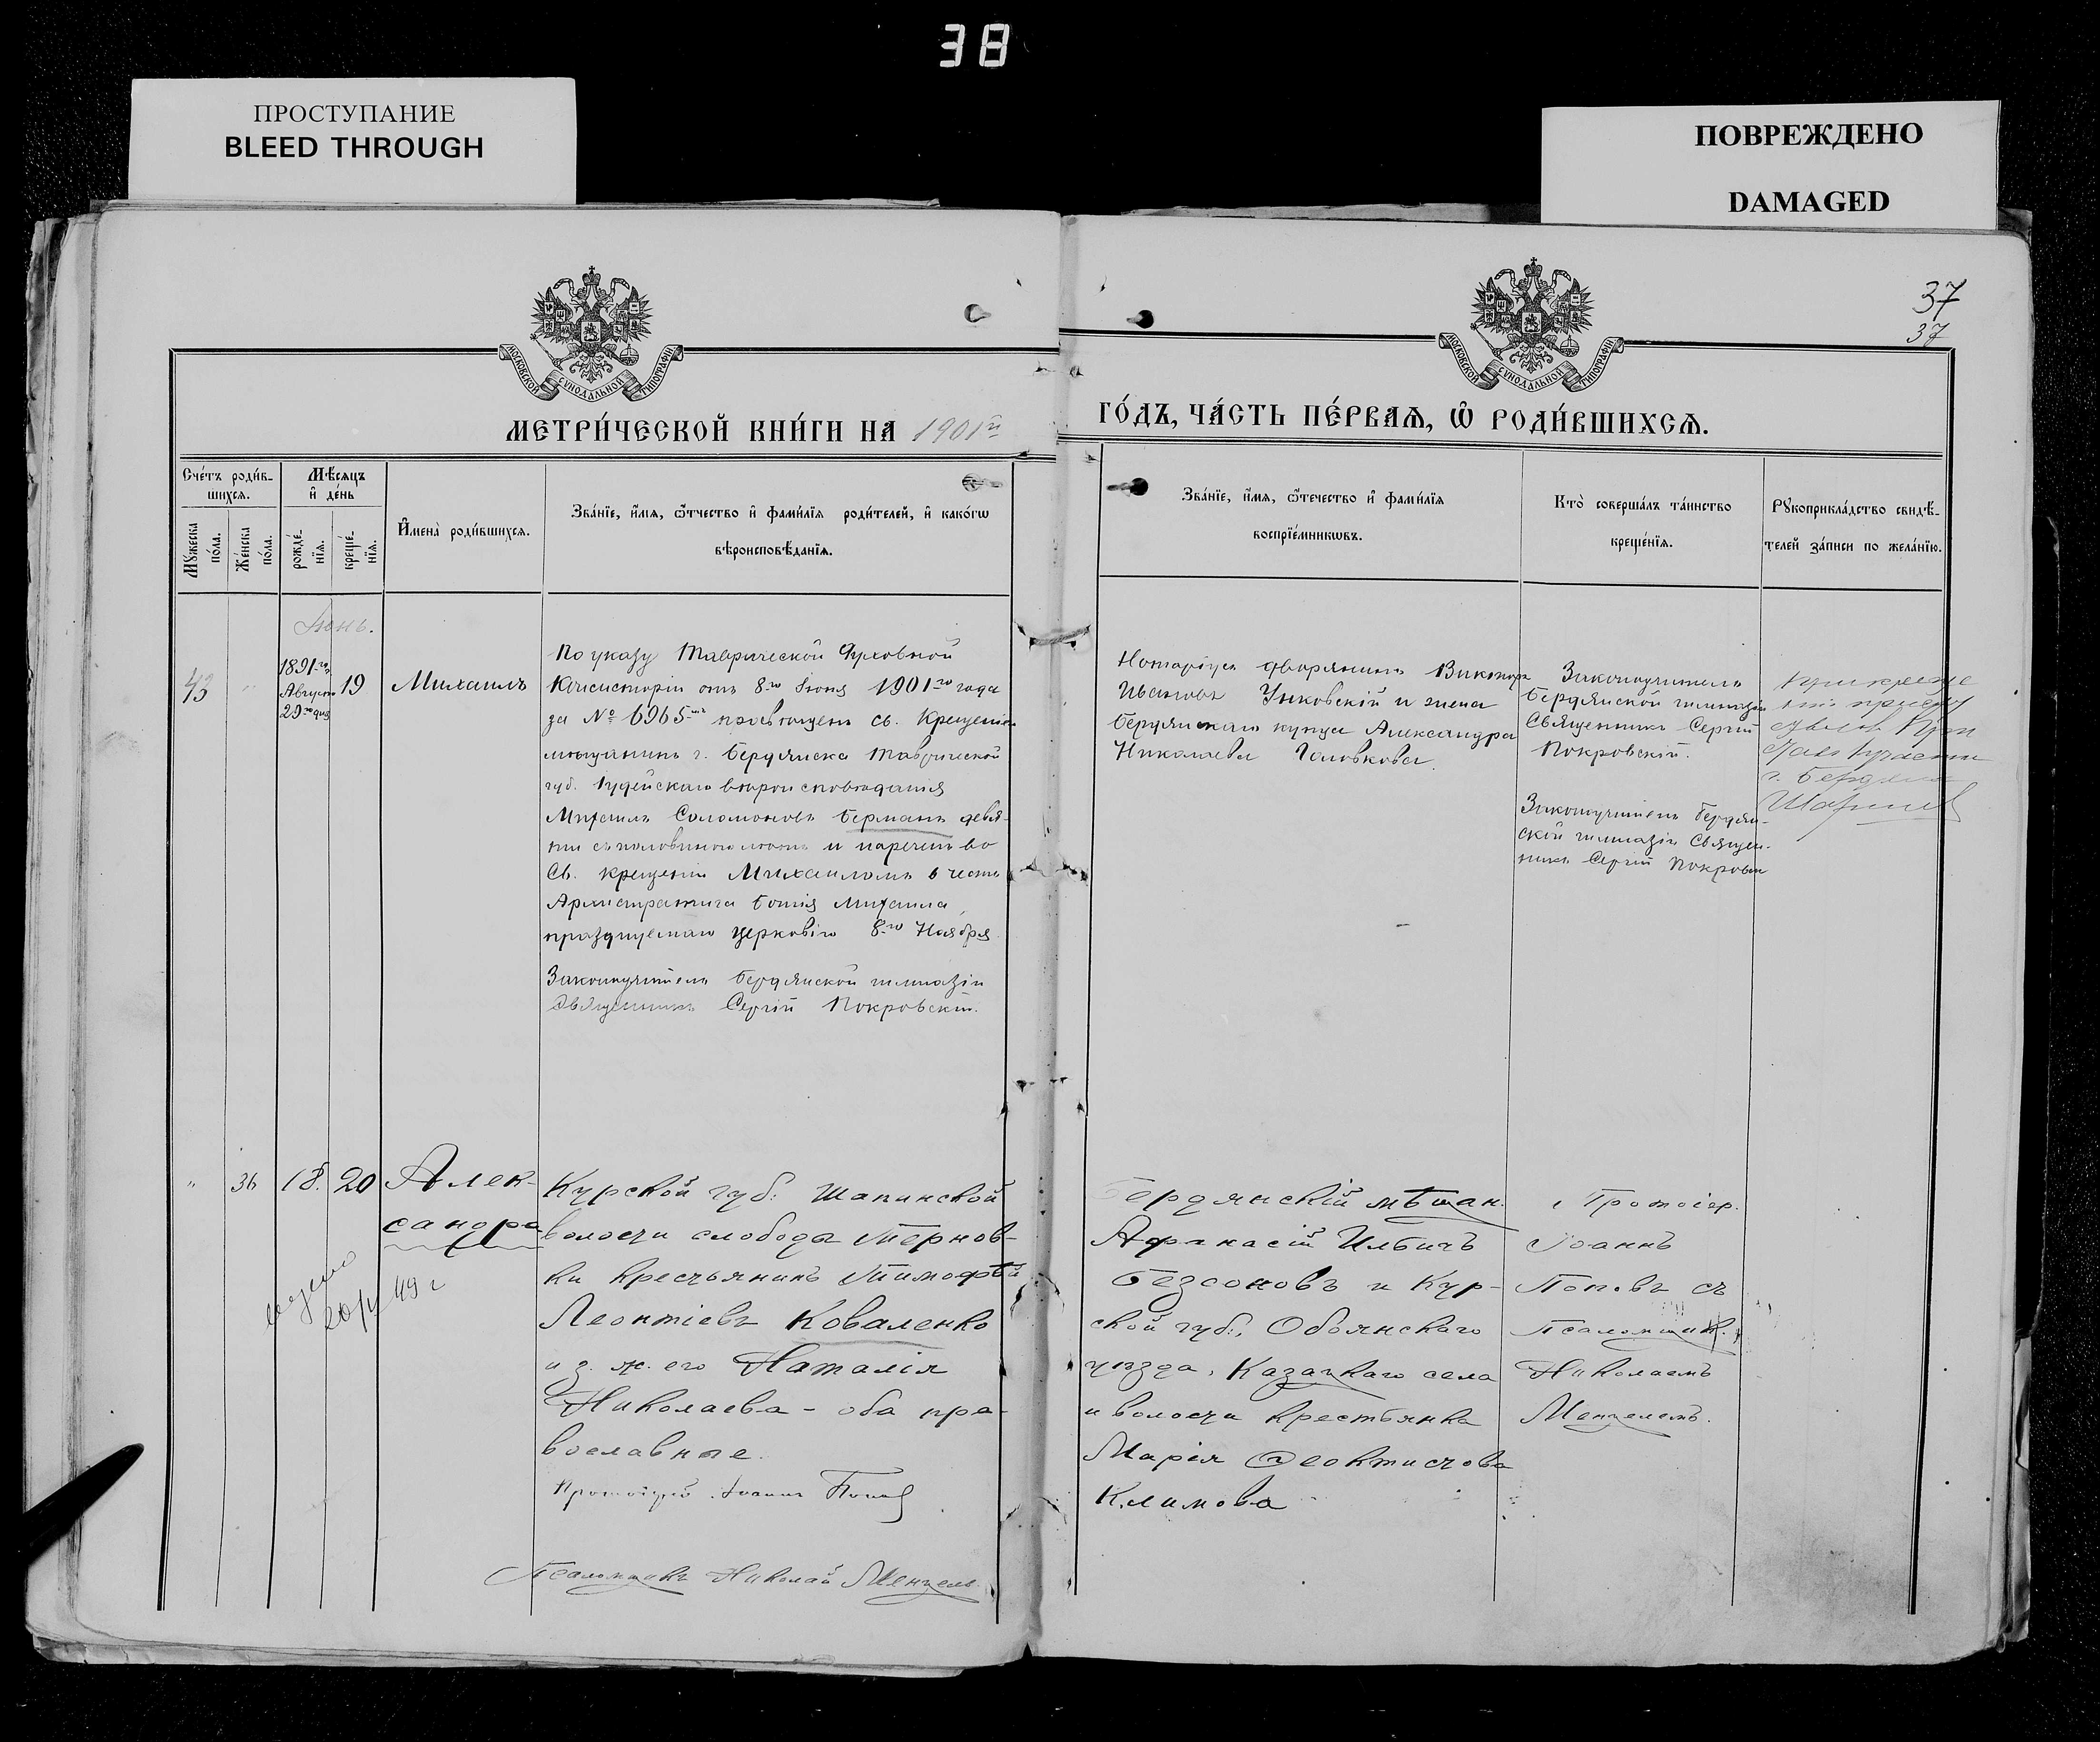 38
ПРОСТУПАНИЕ
BLEED THROUGH
ПОВРЕЖДЕНО
DAMAGED
37
37
МОСКОВСКОЙ СѴНОДАЛЬНОЙ ТИПОГРАФІИ
МОСКОВСКОЙ СѴНОДАЛЬНОЙ ТИПОГРАФІИ
МЕТРИ́ЧЕСКОЙ КНИ́ГИ НА 1901й
ГО́ДЪ, ЧА́СТЬ ПЕ́РВАѦ, Ѡ҆ РОДИ́ВШИХСѦ.
Сче́тъ роди́в-
шихсѧ.
Мꙋ́жеска
по́ла.
Же́нска
по́ла.
Мѣ́сѧцъ
и҆ де́нь
рожде́-
нїѧ.
креще́-
нїѧ.
И҆мена̀ роди́вшихсѧ.
Зва́нїе, и҆́мѧ, ѻ҆́тчество и҆ фами́лїѧ роди́телей, и҆ како́гѡ
вѣроисповѣ́данїѧ.
Зва́нїе, и҆́мѧ, ѻ҆те́чество и҆ фами́лїѧ
воспрїе́мникѡвъ.
Кто̀ соверша́лъ та́инство
креще́нїѧ.
Рꙋкоприкла́дство свидѣ́-
телей за́писи по жела́нїю.
Іюнь.
43
"
1891го
Августа
29го дня
19
Михаилъ
По указу Таврической Духовной
Консисторіи отъ 8го Іюня 1901го года
за № 6965мъ просвѣщенъ св. Крещеніемъ
мѣщанинъ г. Бердянска Таврической
губ. Іудейскаго вѣроисповѣданія
Михаилъ Соломоновъ Берманъ девя-
ти съ половиною лѣтъ и нареченъ во
Св. крещеніи Михаиломъ в честь
Архистратига Божія Михаила,
празднуемаго церковію 8го Ноября
Законоучитель Бердянской гимназіи
Священникъ Сергій Покровскій.
Нотаріусъ дворянинъ Викторъ
Ивановъ Унковскій и жена
Бердянскаго купца Александра
Николаева Головкова.
Законоучитель
Бердянской гимназіи
Священникъ Сергій
Покровскій.
Законоучитель Бердян-
ской гимназіи Священ-
никъ Сергій Покровскій
г. Бердянска
"
36
18.
20
Алек-
сандра
20/V 49 г
Курской губ: Шапинской
волости слободы Тернов-
ки крестьянинъ Тимофѣй
Леонтіевъ Коваленко
и з. ж. его Наталія
Николаева - оба пра-
вославные.
Протоіерей Іоаннъ Поповъ
Псаломщикъ Николай Менцель.
Бердянскій мѣщан.
Афанасій Ильичъ
Безсоновъ и Кур-
ской губ:, Обоянскаго
уѣзда, Казацкаго села
и волости крестьянка
Марія Ѳеоктистова
Климова
Протоіер.
Іоаннъ
Поповъ съ
Псаломщик.
Николаемъ
Менцелемъ.